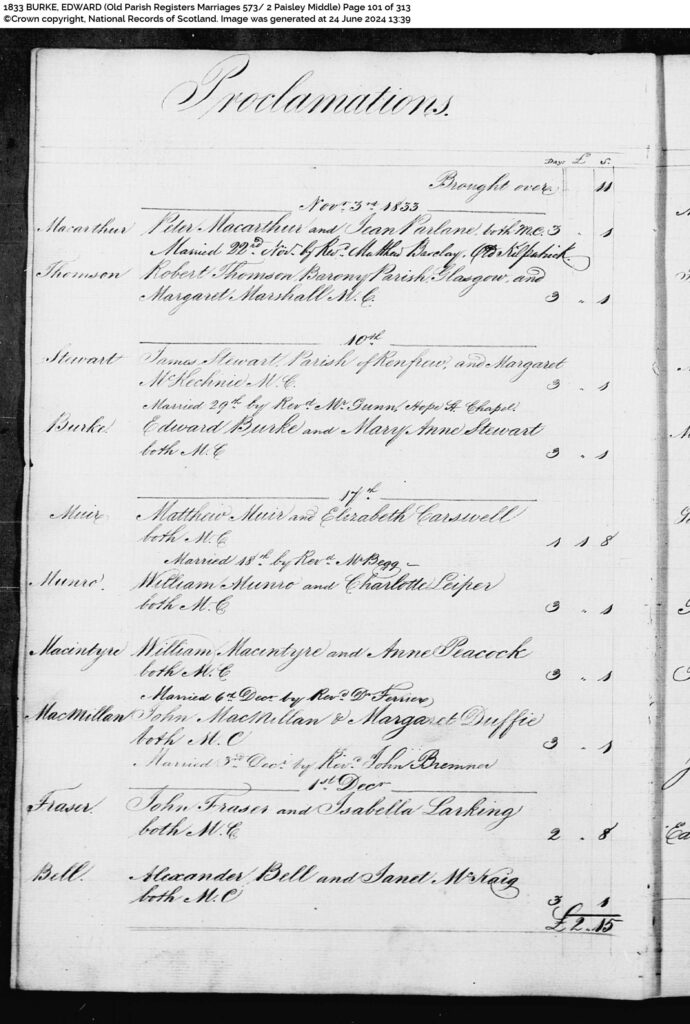 1833 BURKE, EDWARD (Old Parish Registers Marriages 573/ 2 Paisley Middle) Page 101 of 313
©Crown copyright, National Records of Scotland. Image was generated at 24 June 2024 13:39
Proclamations.
Days £ S.
Brought over. 11
Novr. 3rd 1833
Macarthur Peter Macarthur and Jean Parlane, both M.C. 3 " 1
Married 22nd Nov. by Revd. Matthew Barclay, Old Kilpatrick
Thomson Robert Thomson Barony Parish Glasgow, and
Margaret Marshall M.C. 3 " 1
10th
Stewart James Stewart, Parish of Renfrew, and Margaret
McKechnie M.C. 3 " 1
Married 29th by Revd. Mr Gunn, Hope St Chapel.
Burke Edward Burke and Mary Anne Stewart
both M.C 3 " 1
17th
Muir Matthew Muir and Elizabeth Carswell
both M.C 1 1 8
Married 18th by Revd. Mr Begg
Munro. William Munro and Charlotte Leiper
both M.C 3 " 1
Macintyre William Macintyre and Anne Peacock
both M.C 3 " 1
Married 6th Decr. by Revd. Dr Ferrier
MacMillan John MacMillan & Margaret Duffie
both M.C 3 " 1
Married 3rd Decr. by Revd. John Bremner
1st Decr
Fraser. John Fraser and Isabella Larking
both M.C 2 " 8
Bell. Alexander Bell and Janet McKaig
both M.C 3 1
£2 " 15